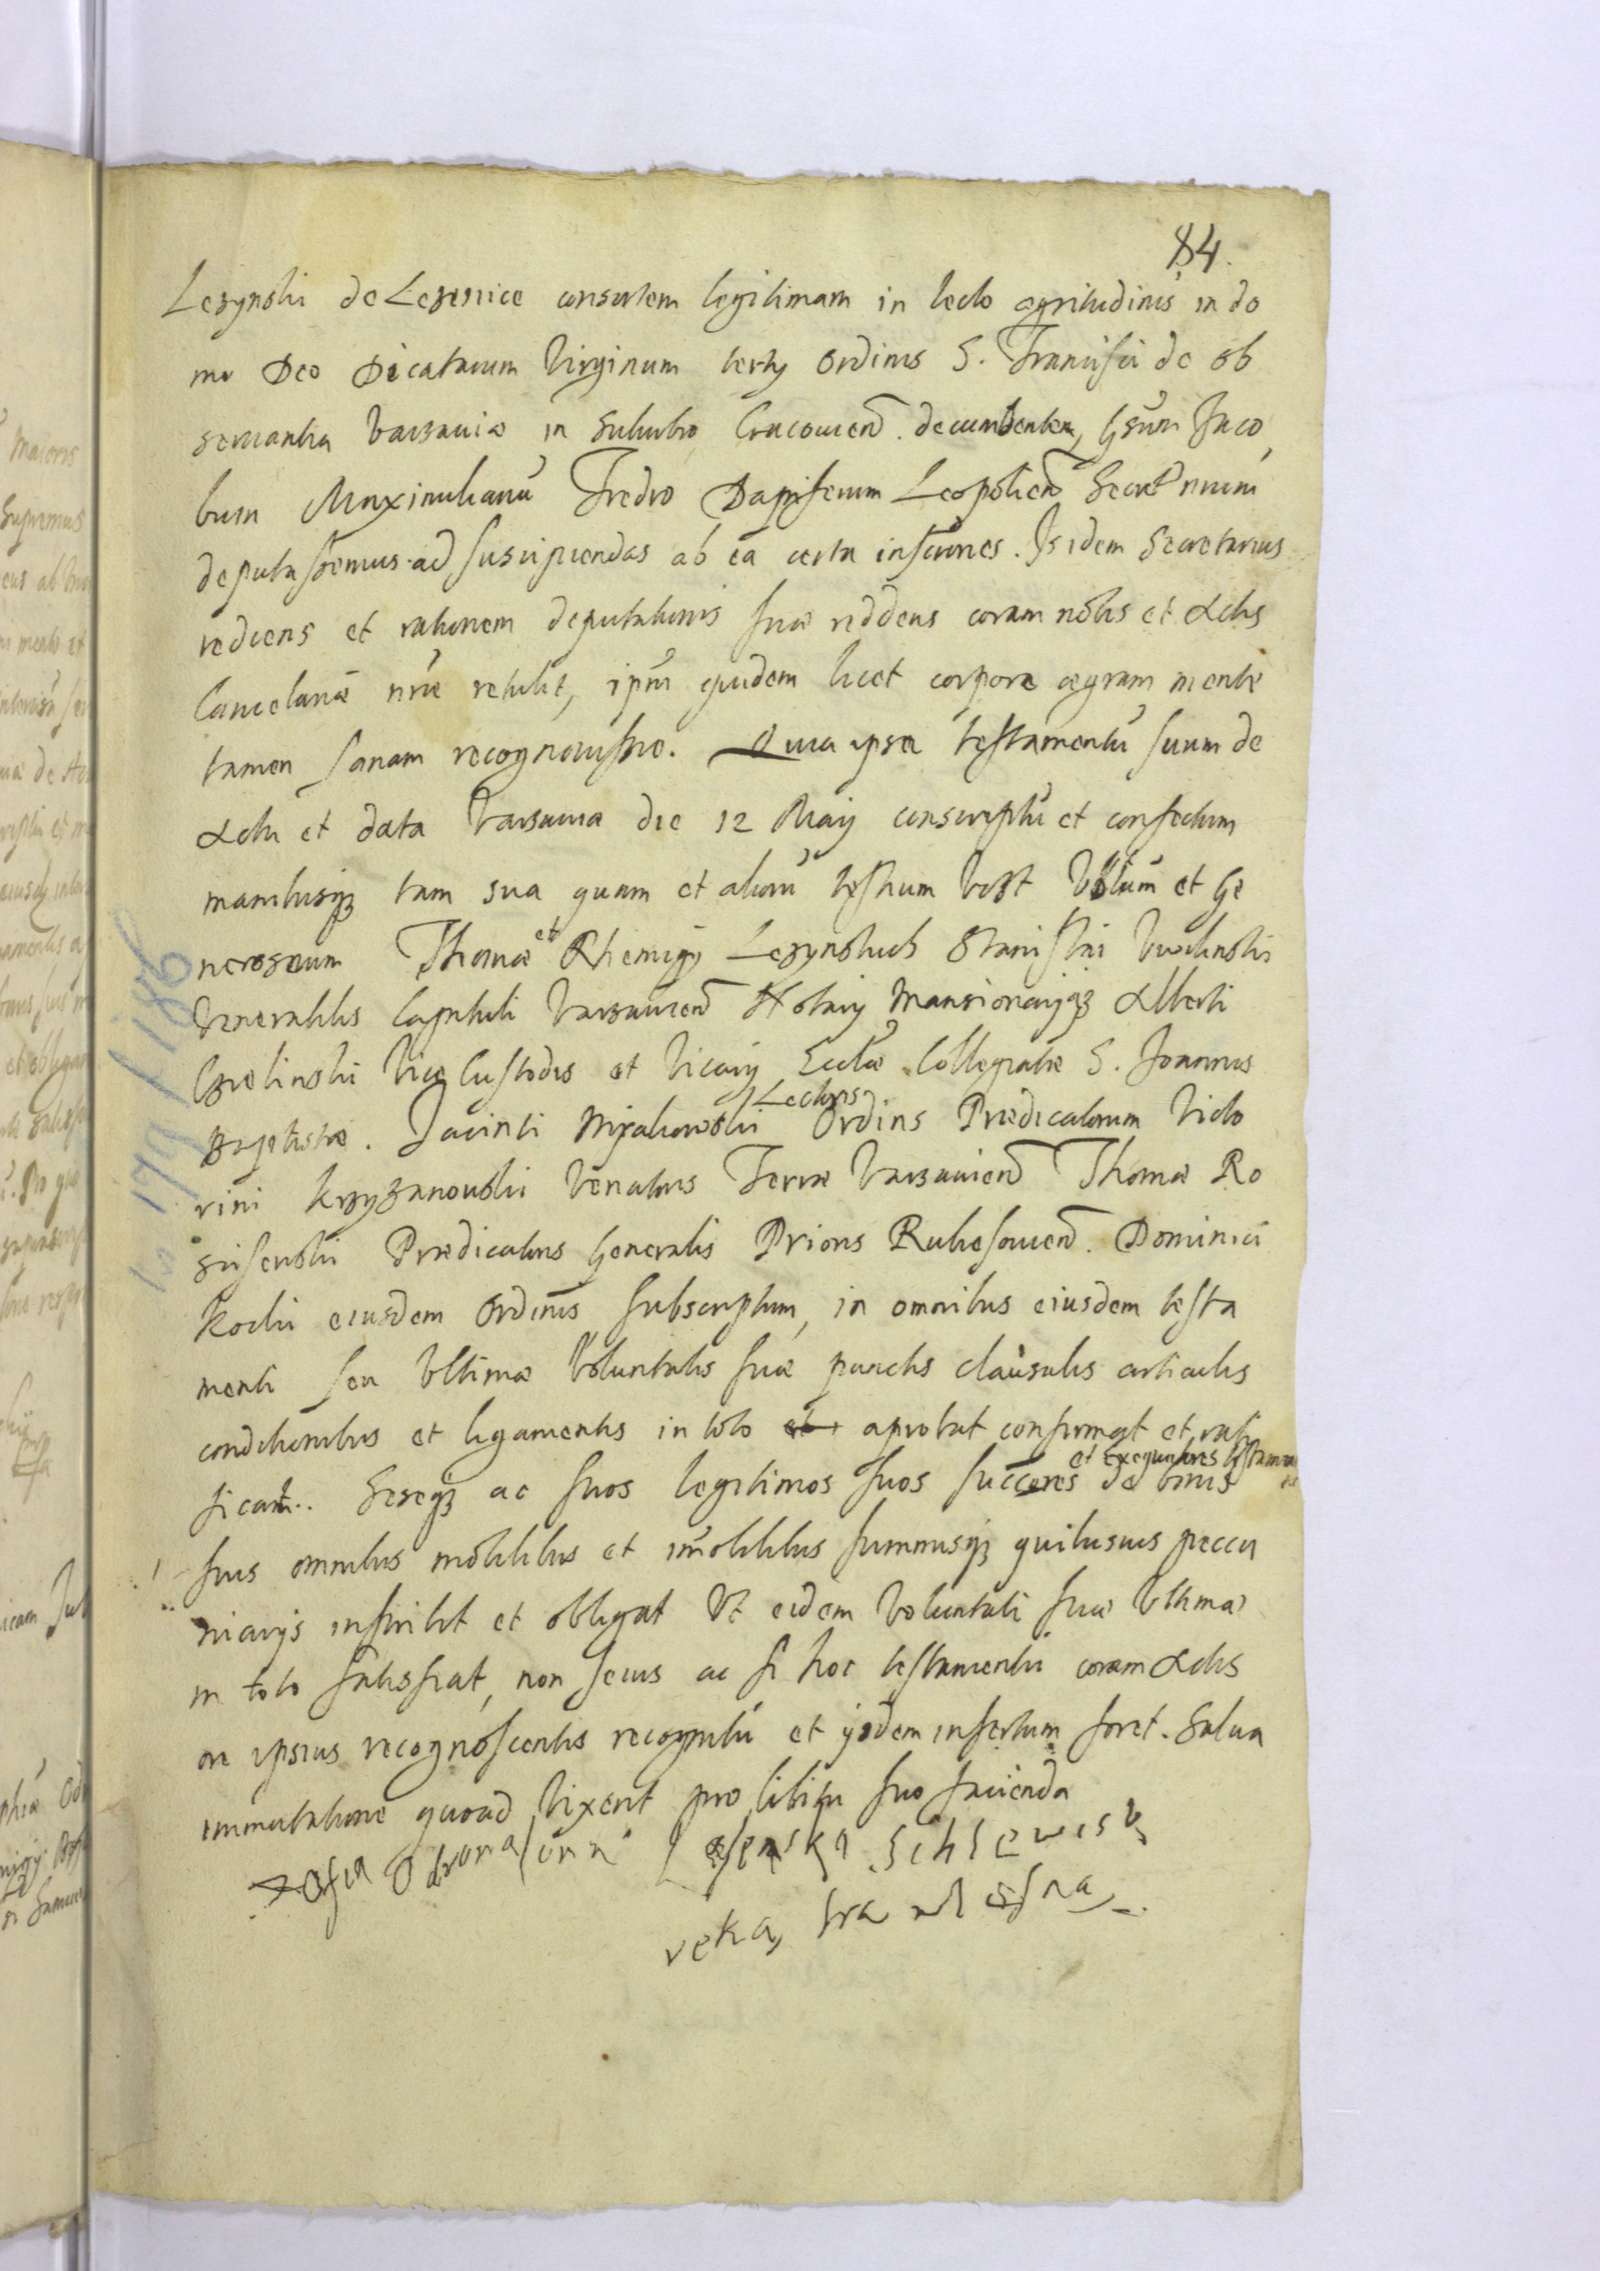 84.
Lezynski de Lezenice consortem legitimam in lecto ægritudinis in do
mo Deo Dicatarum Virginum tertÿ Ordinis S. Francisci de ob
seruantia Varsauiæ in Suburbio Cracouien. decumbentem, Gsum Jaco
bum Maximilianū Fredro Dapiferum Leopolien Secret nrum
deputassemus ad suscipiendas ab ea certa inscriones. Is idem Secretarius
rediens et rationem deputationis suæ reddens coram nobis et Actis
Cancelariæ nræ retulit, ipm quidem licet corpore ægram mente
tamen sanam recognouisse. Quia ipsa testamentū suum de
Actu et data Varsauiæ die 12 Maÿ conscriptū et confectum
manibusqȝ tam sua quam et aliorū testium vost Vblium et Ge
nerosorum Thomæ et Rhemigÿ Lezynskich Stanislai Vuolinski
Venerabilis Capituli Varsauien Notarÿ Mansionarÿqȝ Alberti
Czielinski Vice Custodis et Vicarÿ Ecclæ Collegiatæ S. Joannis
Baptistæ. Jacinti Mijakowski Lectoris Ordinis Prædicatorum Victo
rini Krzyzanouski Venatoris Terræ Varsauien Thomæ Ro
siseuski Prædicatoris Generalis Prioris Rubesouien. Dominici
Kocki eiusdem Ordinis subscriptum, in omnibus eiusdem testa
menti seu Vltimæ Voluntatis suæ punctis clausulis articulis
conditionibus et ligamentis in toto et aprobat confirmat et rati
ficat. Seseqȝ ac suos legitimos suos succeres et exequutores testamen de bonis
suis omnibus mobilibus et imobilibus summisqȝ quibusuis peccu
niarÿs inscribit et obligat Vt eidem Voluntati suæ Vltimæ
in toto satisfiat, non secus ac si hoc testamentū coram Actis
ore ipsius recognoscentis recognitū et ÿsdem insertum foret. Salua
immutatione quoad Vixerit pro libitu suo facienda
Zofia Odrowa
reka,
to 179 f 186